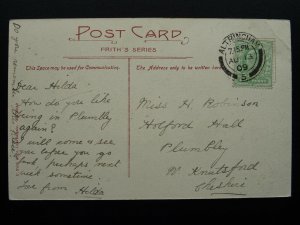 POST CARD
FRITH'S SERIES
This Space may be used for Communication.
The Address only to be written here.
ALTRINCHAM
7.15 PM
AU 13
09
Dear Hilda
How do you like
being in Plumbley
again?
I will come & see
you before you go
back perhaps next
week sometime
Love from Hilda
Miss H. Robinson
Holford Hall
Plumbley
Nr Knutsford
Cheshire